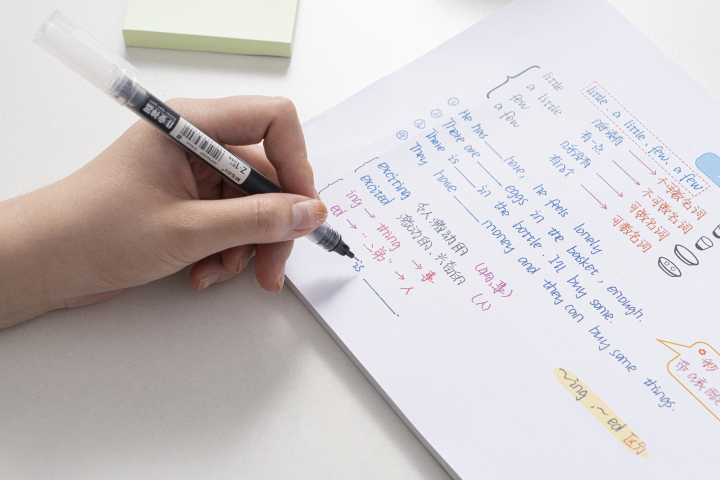 little
a little
few
a few
little, a little, few, a few
几乎没有
有一点
几乎没有
有几个
不可数名词
不可数名词
可数名词
可数名词
① He has ___ here, he feels lonely
② There are ___ eggs in the basket, enough.
③ There is ___ in the bottle. I'll buy some.
④ They have ___ money and they can buy some things.
exciting 令人激动的 (物,事)
excited 激动的,兴奋的 (人)
ing → thing → 事
ed → 人
is
~ing, ~ed 区分